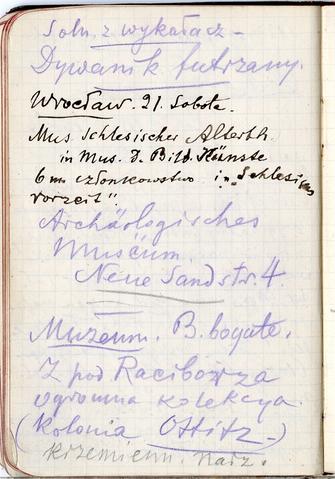 Soln. z wykałacz -
Dywanik futrzany.
Wrocław. 21. Sobota.
Mus. Schlesischer Alterth.
in Mus. d. Bild. Künste
6 m członkowstwo in „Schlesiens
Vorzeit".
Archäologisches
Museum.
Neue Sandstr. 4.
Muzeum. B. bogate.
Z pod Raciborza
ogromna kolekcya
(Kolonia Ottitz -)
krzemienn. narz.